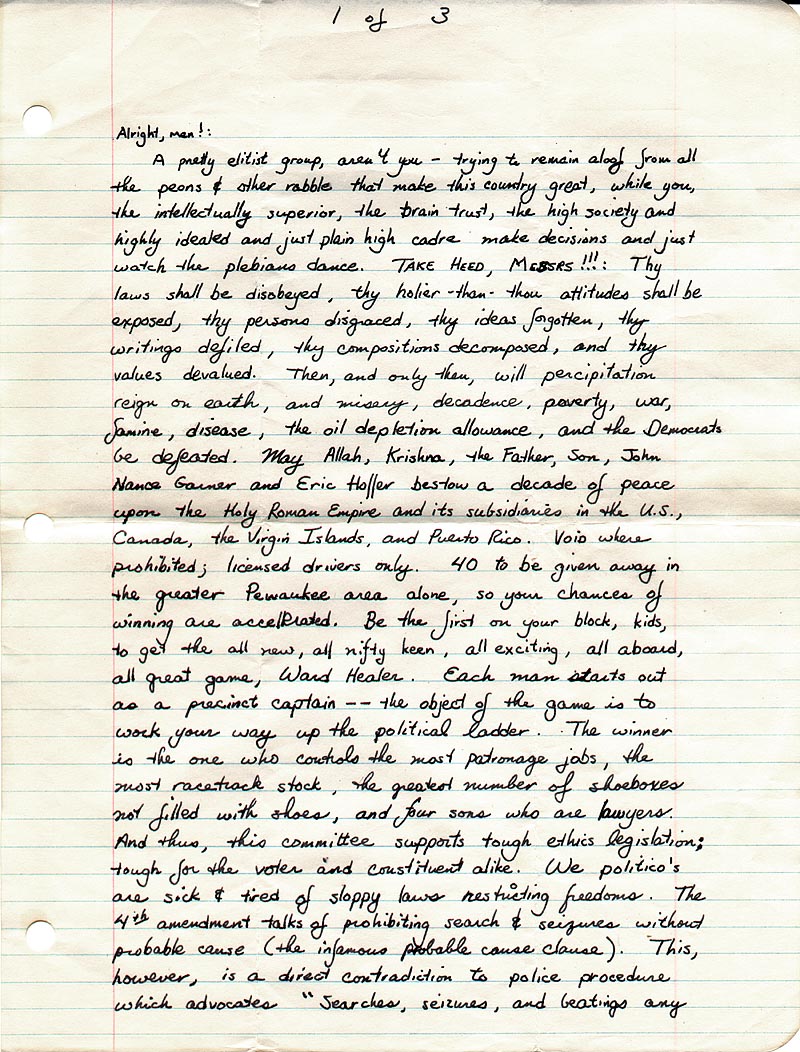 1 of 3
Alright, men!:
A pretty elitist group, aren't you - trying to remain aloof from all
the peons & other rabble that make this country great, while you,
the intellectually superior, the brain trust, the high society and
highly idealed and just plain high cadre make decisions and just
watch the plebians dance. TAKE HEED, MESSRS!!!: Thy
laws shall be disobeyed, thy holier-than-thou attitudes shall be
exposed, thy persons disgraced, thy ideas forgotten, thy
writings defiled, thy compositions decomposed, and thy
values devalued. Then, and only then, will percipitation
reign on earth, and misery, decadence, poverty, war,
famine, disease, the oil depletion allowance, and the Democrats
be defeated. May Allah, Krishna, the Father, Son, John
Nance Garner and Eric Hoffer bestow a decade of peace
upon the Holy Roman Empire and its subsidiaries in the U.S.,
Canada, the Virgin Islands, and Puerto Rico. Void where
prohibited; licensed drivers only. 40 to be given away in
the greater Pewaukee area alone, so your chances of
winning are accelerated. Be the first on your block, kids,
to get the all new, all nifty keen, all exciting, all aboard,
all great game, Ward Healer. Each man starts out
as a precinct captain -- the object of the game is to
work your way up the political ladder. The winner
is the one who controls the most patronage jobs, the
most racetrack stock, the greatest number of shoeboxes
not filled with shoes, and four sons who are lawyers.
And thus, this committee supports tough ethics legislation;
tough for the voter and constituent alike. We politico's
are sick & tired of sloppy laws restricting freedoms. The
4th amendment talks of prohibiting search & seizures without
probable cause (the infamous probable cause clause). This,
however, is a direct contradiction to police procedure
which advocates "Searches, seizures, and beatings any